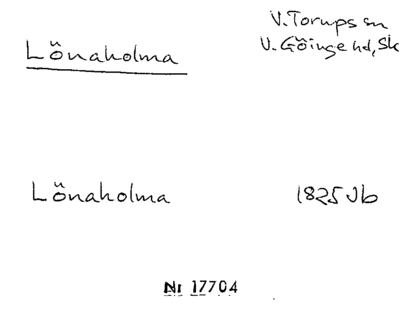 V. Torups sn
Lönaholma
V. Göinge hd, Sk
Lönaholma 1825 Jb
Nr 17704